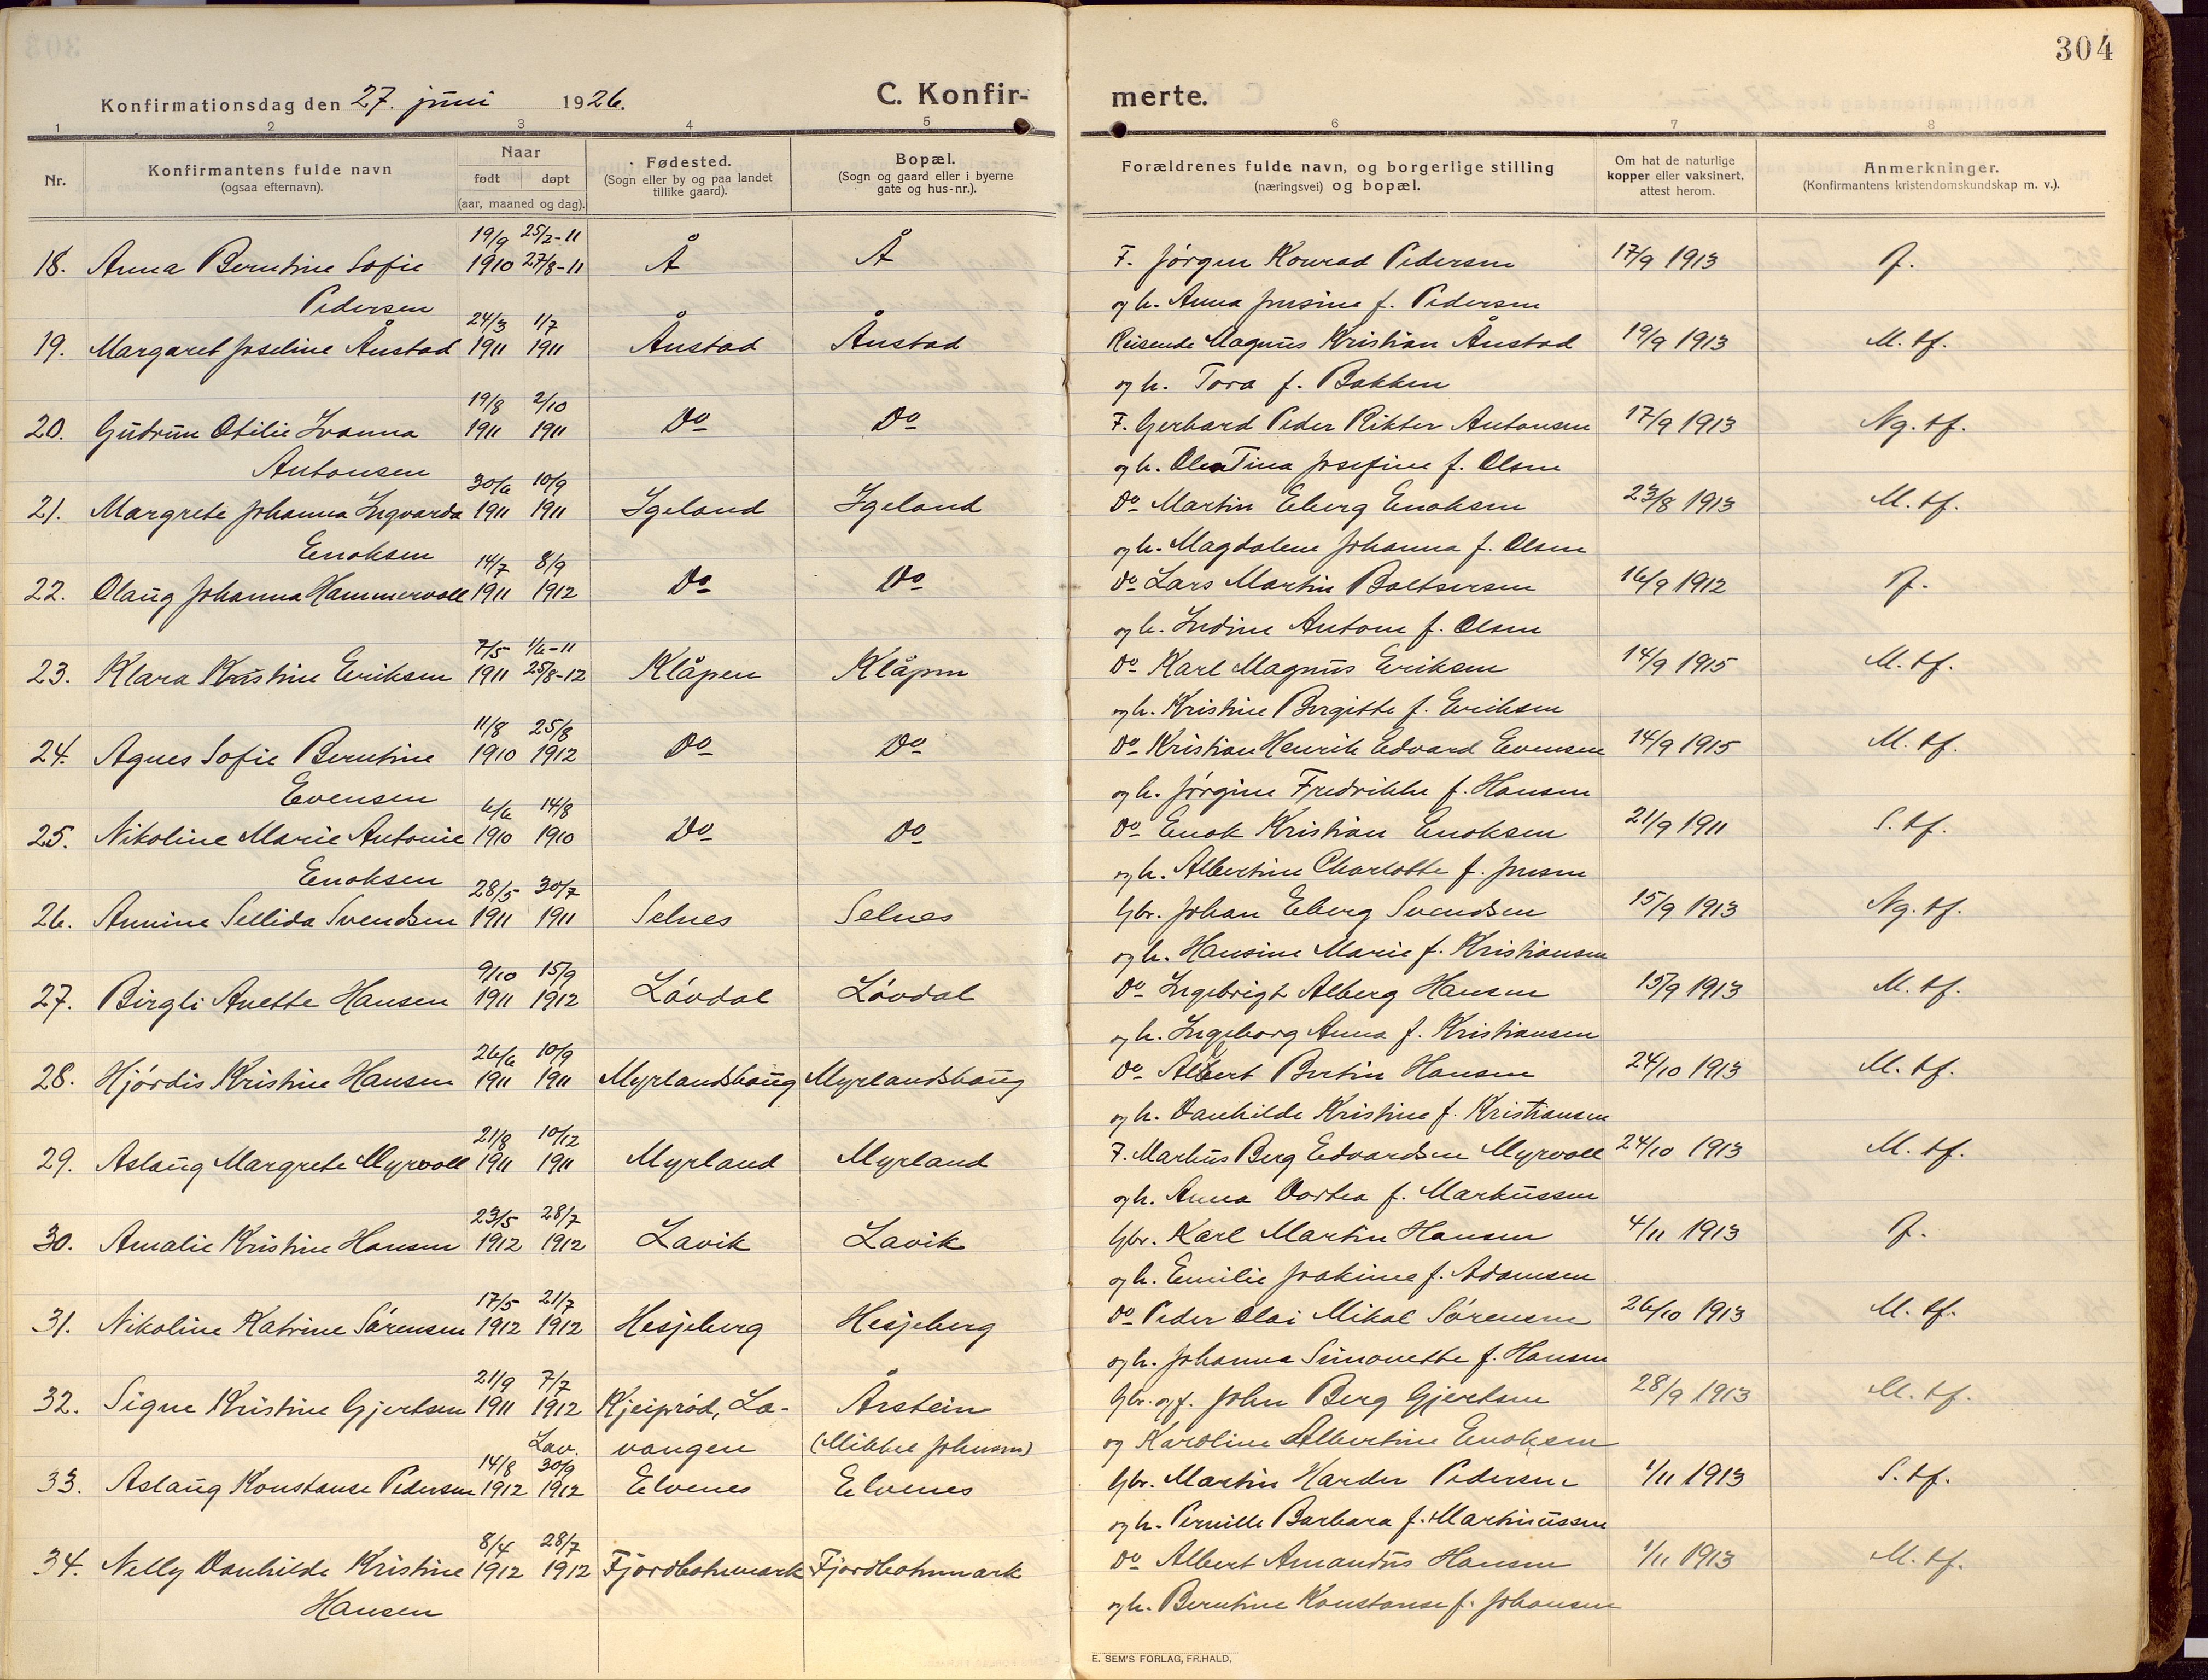 304
Konfirmationsdag den 27. juni 1926.
C. Konfir-
merte.
1 2 3 4 5 6 7 8
Nr.
Konfirmantens fulde navn
(ogsaa efternavn).
Naar
født døpt
(aar, maaned og dag).
Fødested.
(Sogn eller by og paa landet
tillike gaard).
Bopæl.
(Sogn og gaard eller i byerne
gate og hus-nr.).
Forældrenes fulde navn, og borgerlige stilling
(næringsvei) og bopæl.
Om hat de naturlige
kopper eller vaksinert,
attest herom.
Anmerkninger.
(Konfirmantens kristendomskundskap m. v.).
19/9 25/2-11
18. Anna Berntine Sofie 1910 27/8-11 Å Å F. Jørgen Konrad Pedersen 17/9 1913
Pedersen og h. Anna Jensine f. Pedersen
24/3 1/7
19. Margaret Joseline Ånstad 1911 1911 Ånstad Ånstad Reisende Magnus Kristian Ånstad 19/9 1913 M. tf.
og h. Tora f. Bakken
19/8 2/10
20. Gudrun Otilie Ivanna 1911 1911 Do Do F. Gerhard Peder Rikter Antonsen 17/9 1913 Ng. tf.
Antonsen og h. Olea Tina Josefine f. Olsen
30/6 10/9
21. Margrete Johanna Ingvarda 1911 1911 Igeland Igeland Do Martin Eberg Enoksen 23/8 1913 M. tf.
Enoksen og h. Magdalene Johanna f. Olsen
14/7 8/9
22. Olaug Johanna Hammervoll 1911 1912 Do Do Do Lars Martin Baltsersen 16/9 1912
og h. Indine Antone f. Olsen
7/5 1/6-11
23. Klara Kristine Eriksen 1911 25/8-12 Klåpen Klåpen Do Karl Magnus Eriksen 14/9 1915 M. tf.
og h. Kristine Birgitte f. Eriksen
11/8 25/8
24. Agnes Sofie Berntine 1910 1912 Do Do Do Kristian Henrik Edvard Evensen 14/9 1915 M. tf.
Evensen og h. Jørgine Fredrikke f. Hansen
6/6 14/8
25. Nikoline Marie Antonie 1910 1910 Do Do Do Enok Kristian Enoksen 21/9 1911 S. tf.
Enoksen og h. Albertine Charlotte f. Jensen
28/5 30/7
26. Annine Sellida Svendsen 1911 1911 Selnes Selnes Gbr. Johan Eberg Svendsen 15/9 1913 Ng. tf.
og h. Hansine Marie f. Kristiansen
9/10 15/9
27. Birgli Anette Hansen 1911 1912 Løvdal Løvdal Do Ingebrigt Alberg Hansen 15/9 1913 M. tf.
og h. Ingeborg Anna f. Kristiansen
26/6 10/9
28. Hjørdis Kristine Hansen 1911 1911 Myrlandshaug Myrlandshaug Do Bertin Hansen 24/10 1913 M. tf.
og h. Danhilde Kristine f. Kristiansen
21/8 10/12
29. Aslaug Margrete Myrvoll 1911 1911 Myrland Myrland F. Markus Berg Edvardsen Myrvoll 24/10 1913 M. tf.
og h. Anna Dortea f. Markussen
23/5 28/7
30. Amalie Kristine Hansen 1912 1912 Lavik Lavik Gbr. Karl Martin Hansen 4/11 1913
og h. Emilie Joakime f. Adamsen
17/5 21/7
31. Nikoline Katrine Sørensen 1912 1912 Hesjeberg Hesjeberg Do Peder Olai Mikal Sørensen 26/10 1913 M. tf.
og h. Johanna Simonette f. Hansen
21/9 7/7
32. Signe Kristine Gjertsen 1911 1912 Kjeiprød, La- Årstein Gbr. og f. John Berg Gjertsen 28/9 1913 M. tf.
Lav. vangen (Mikkel Johnsen) og Karoline Albertine Enoksen
14/8 30/9
33. Aslaug Konstanse Pedersen 1912 1912 Elvenes Elvenes Gbr. Martin Harder Pedersen 1/11 1913 S. tf.
og h. Pernille Barbara f. Martinussen
8/4 28/7
34. Nelly Danhilde Kristine 1912 1912 Fjordbotnmark Fjordbotnmark Do Albert Amandus Hansen 1/11 1913 M. tf.
Hansen og h. Berntine Konstanse f. Johansen
E. SEM'S FORLAG, FR.HALD.